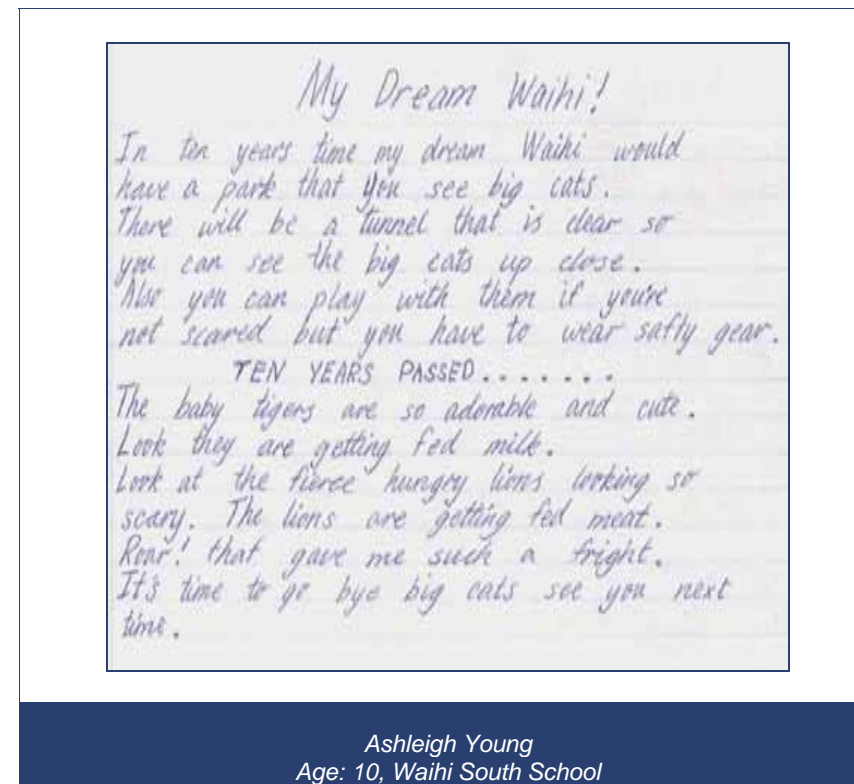 My Dream Waihi!
In ten years time my dream Waihi would
have a park that you see big cats.
There will be a tunnel that is clear so
you can see the big cats up close.
Also you can play with them if you're
not scared but you have to wear safty gear.
TEN YEARS PASSED.......
The baby tigers are so adorable and cute.
Look they are getting fed milk.
Look at the fierce hungry lions looking so
scary. The lions are getting fed meat.
Roar! that gave me such a fright.
It's time to go bye big cats see you next
time.
Ashleigh Young
Age: 10, Waihi South School